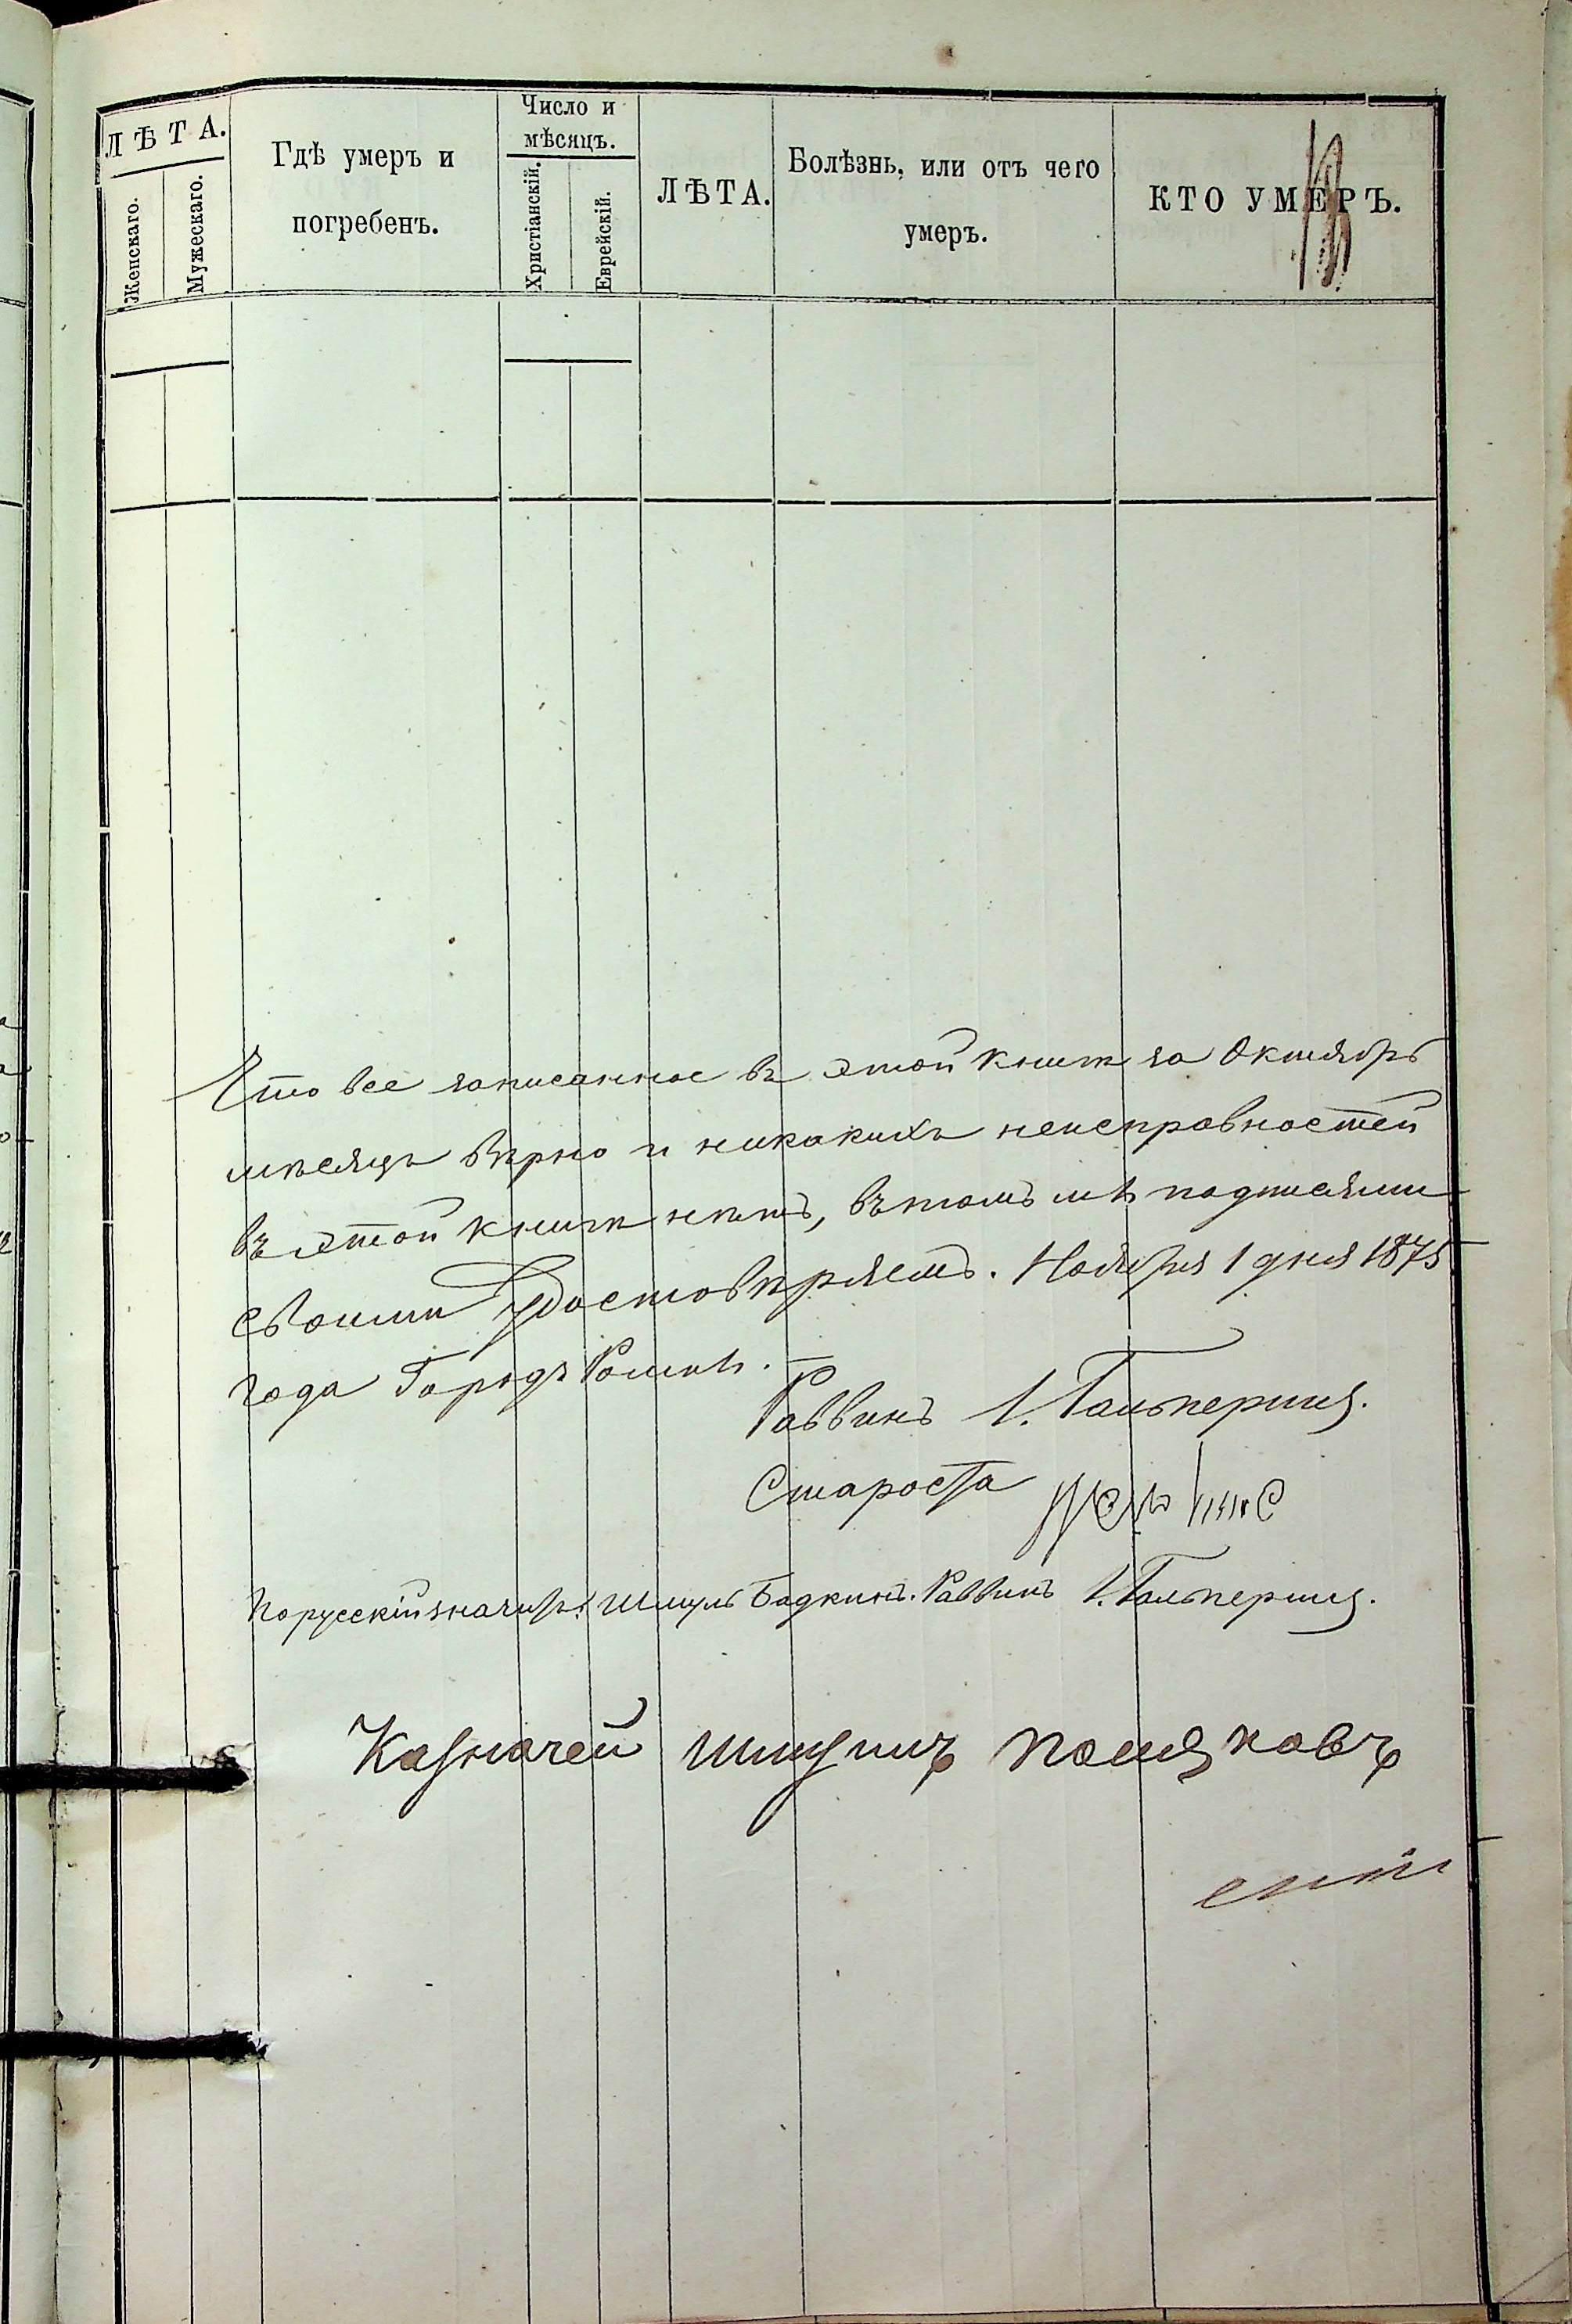 ЛѢТА.
Женскаго.
Мужескаго.
Гдѣ умеръ и
погребенъ.
Число и
мѣсяцъ.
Христіанскій.
Еврейскій.
ЛѢТА.
Болѣзнь, или отъ чего
умеръ.
КТО УМЕРЪ.
Что все записанное въ этой книгѣ за Октябрь
мѣсяцъ вѣрно и никакихъ неисправностей
въ этой книгѣ нѣтъ, въ томъ мы подписями
своими удостовѣряемъ. Ноября 1 дня 1875
года Городъ Ромны.
Раввинъ І. Гальперинъ.
Староста
По русскій значитъ: Шмуль Бадкинъ. Раввинъ І. Гальперинъ.
Казначей Шмуиль Поляковъ